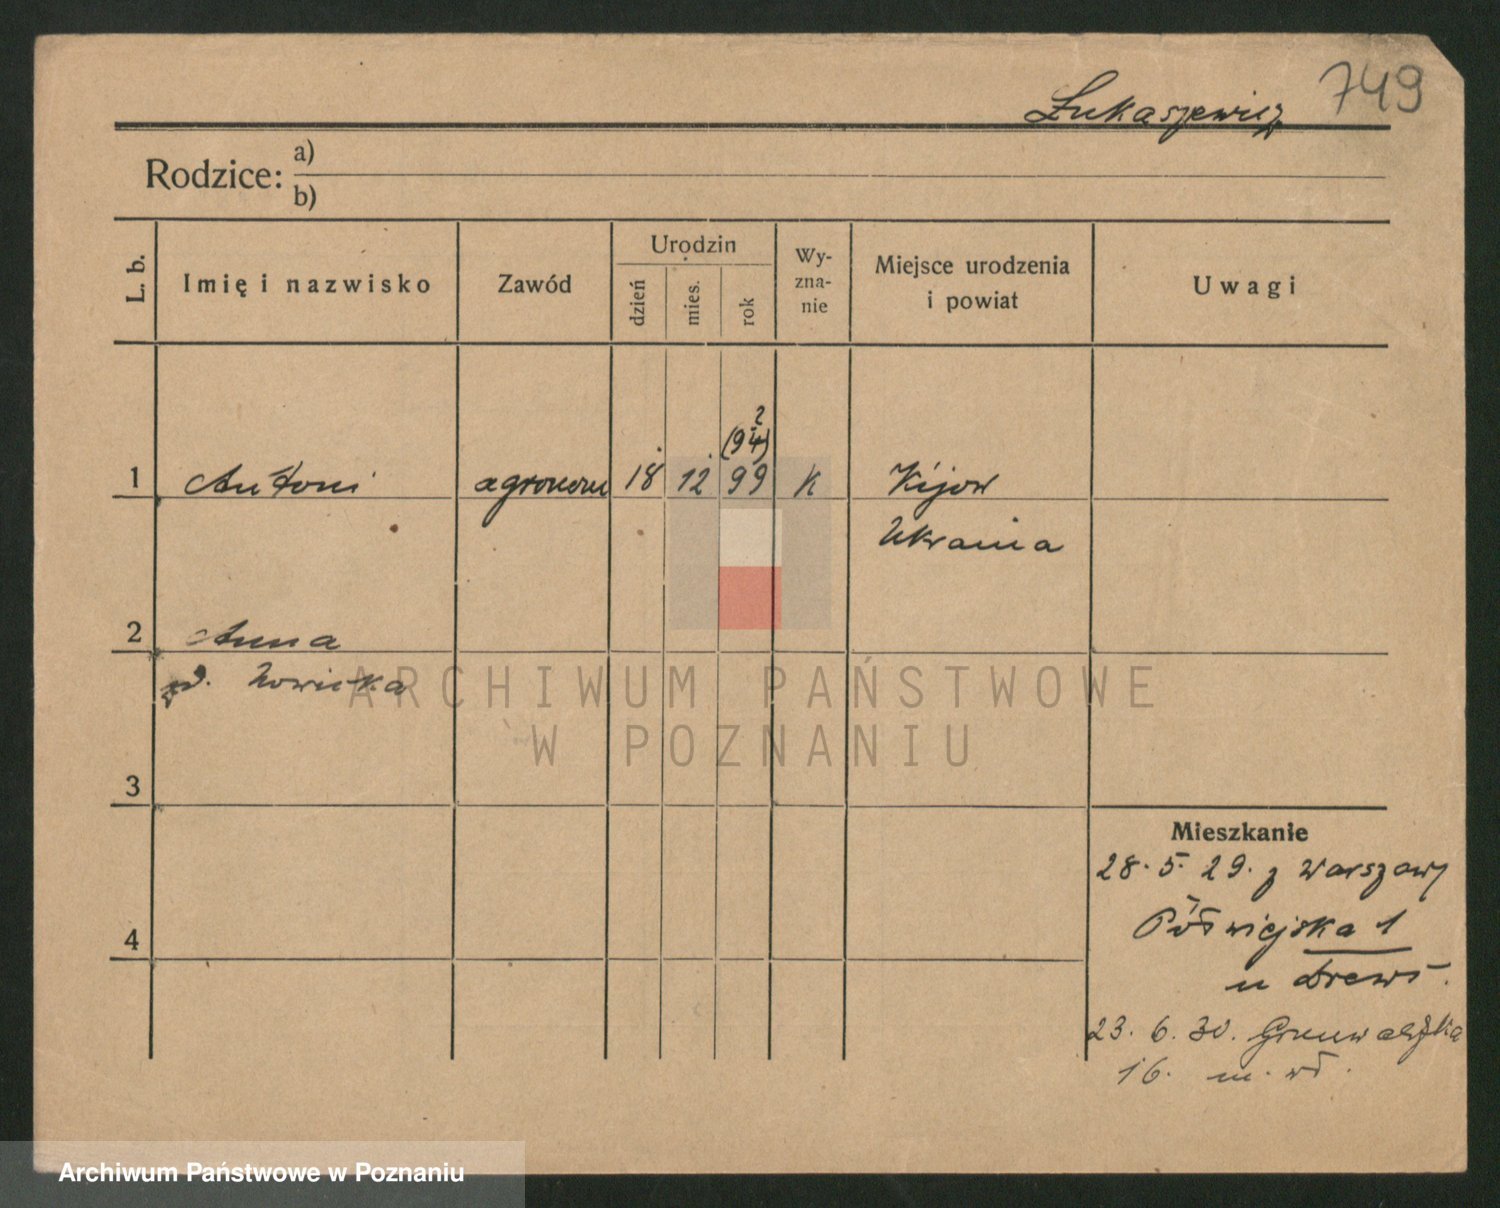 749
Łukaszewicz
Rodzice: a)
b)
L. b.
Imię i nazwisko
Zawód
Urodzin
dzień
mies.
rok
Wy-
zna-
nie
Miejsce urodzenia
i powiat
Uwagi
2
(94)
1 Antoni agronom 18 12 99 K Kijow
Ukraina
2 Anna
Nowicka
3
4
Mieszkanie
28. 5. 29. z Warszawy
Półwiejska 1
u Drews.
23. 6. 30. Grunwaldzka
16. m. wł.
ARCHIWUM PAŃSTWOWE
W POZNANIU
Archiwum Państwowe w Poznaniu